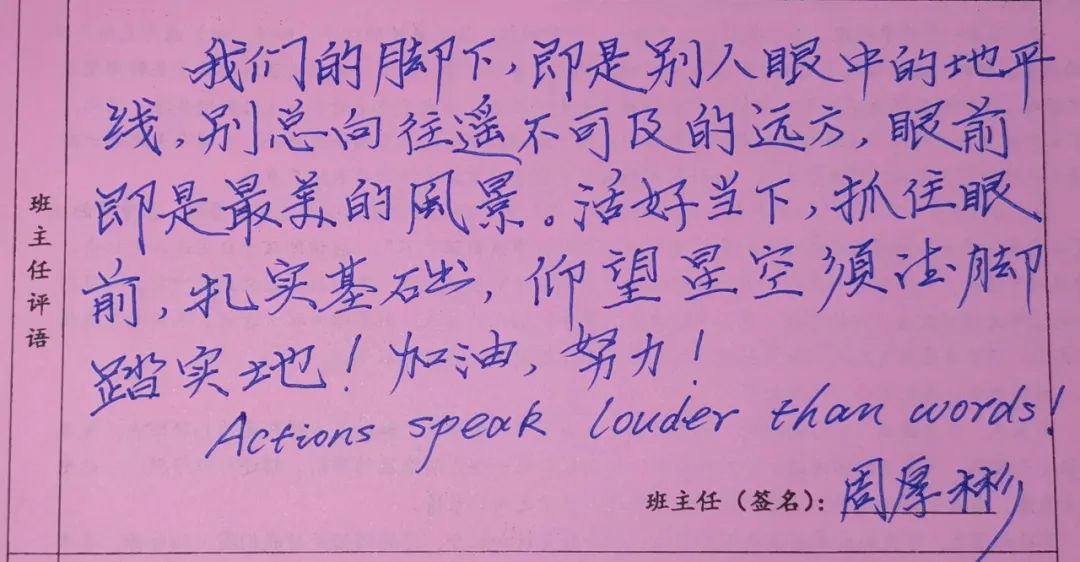 我们的脚下,即是别人眼中的地平
线,别总向往遥不可及的远方,眼前
即是最美的風景。活好当下,抓住眼
前,扎实基础,仰望星空须注脚
踏实地!加油,努力!
Actions speak louder than words!
班主任评语
班主任(签名):周厚彬